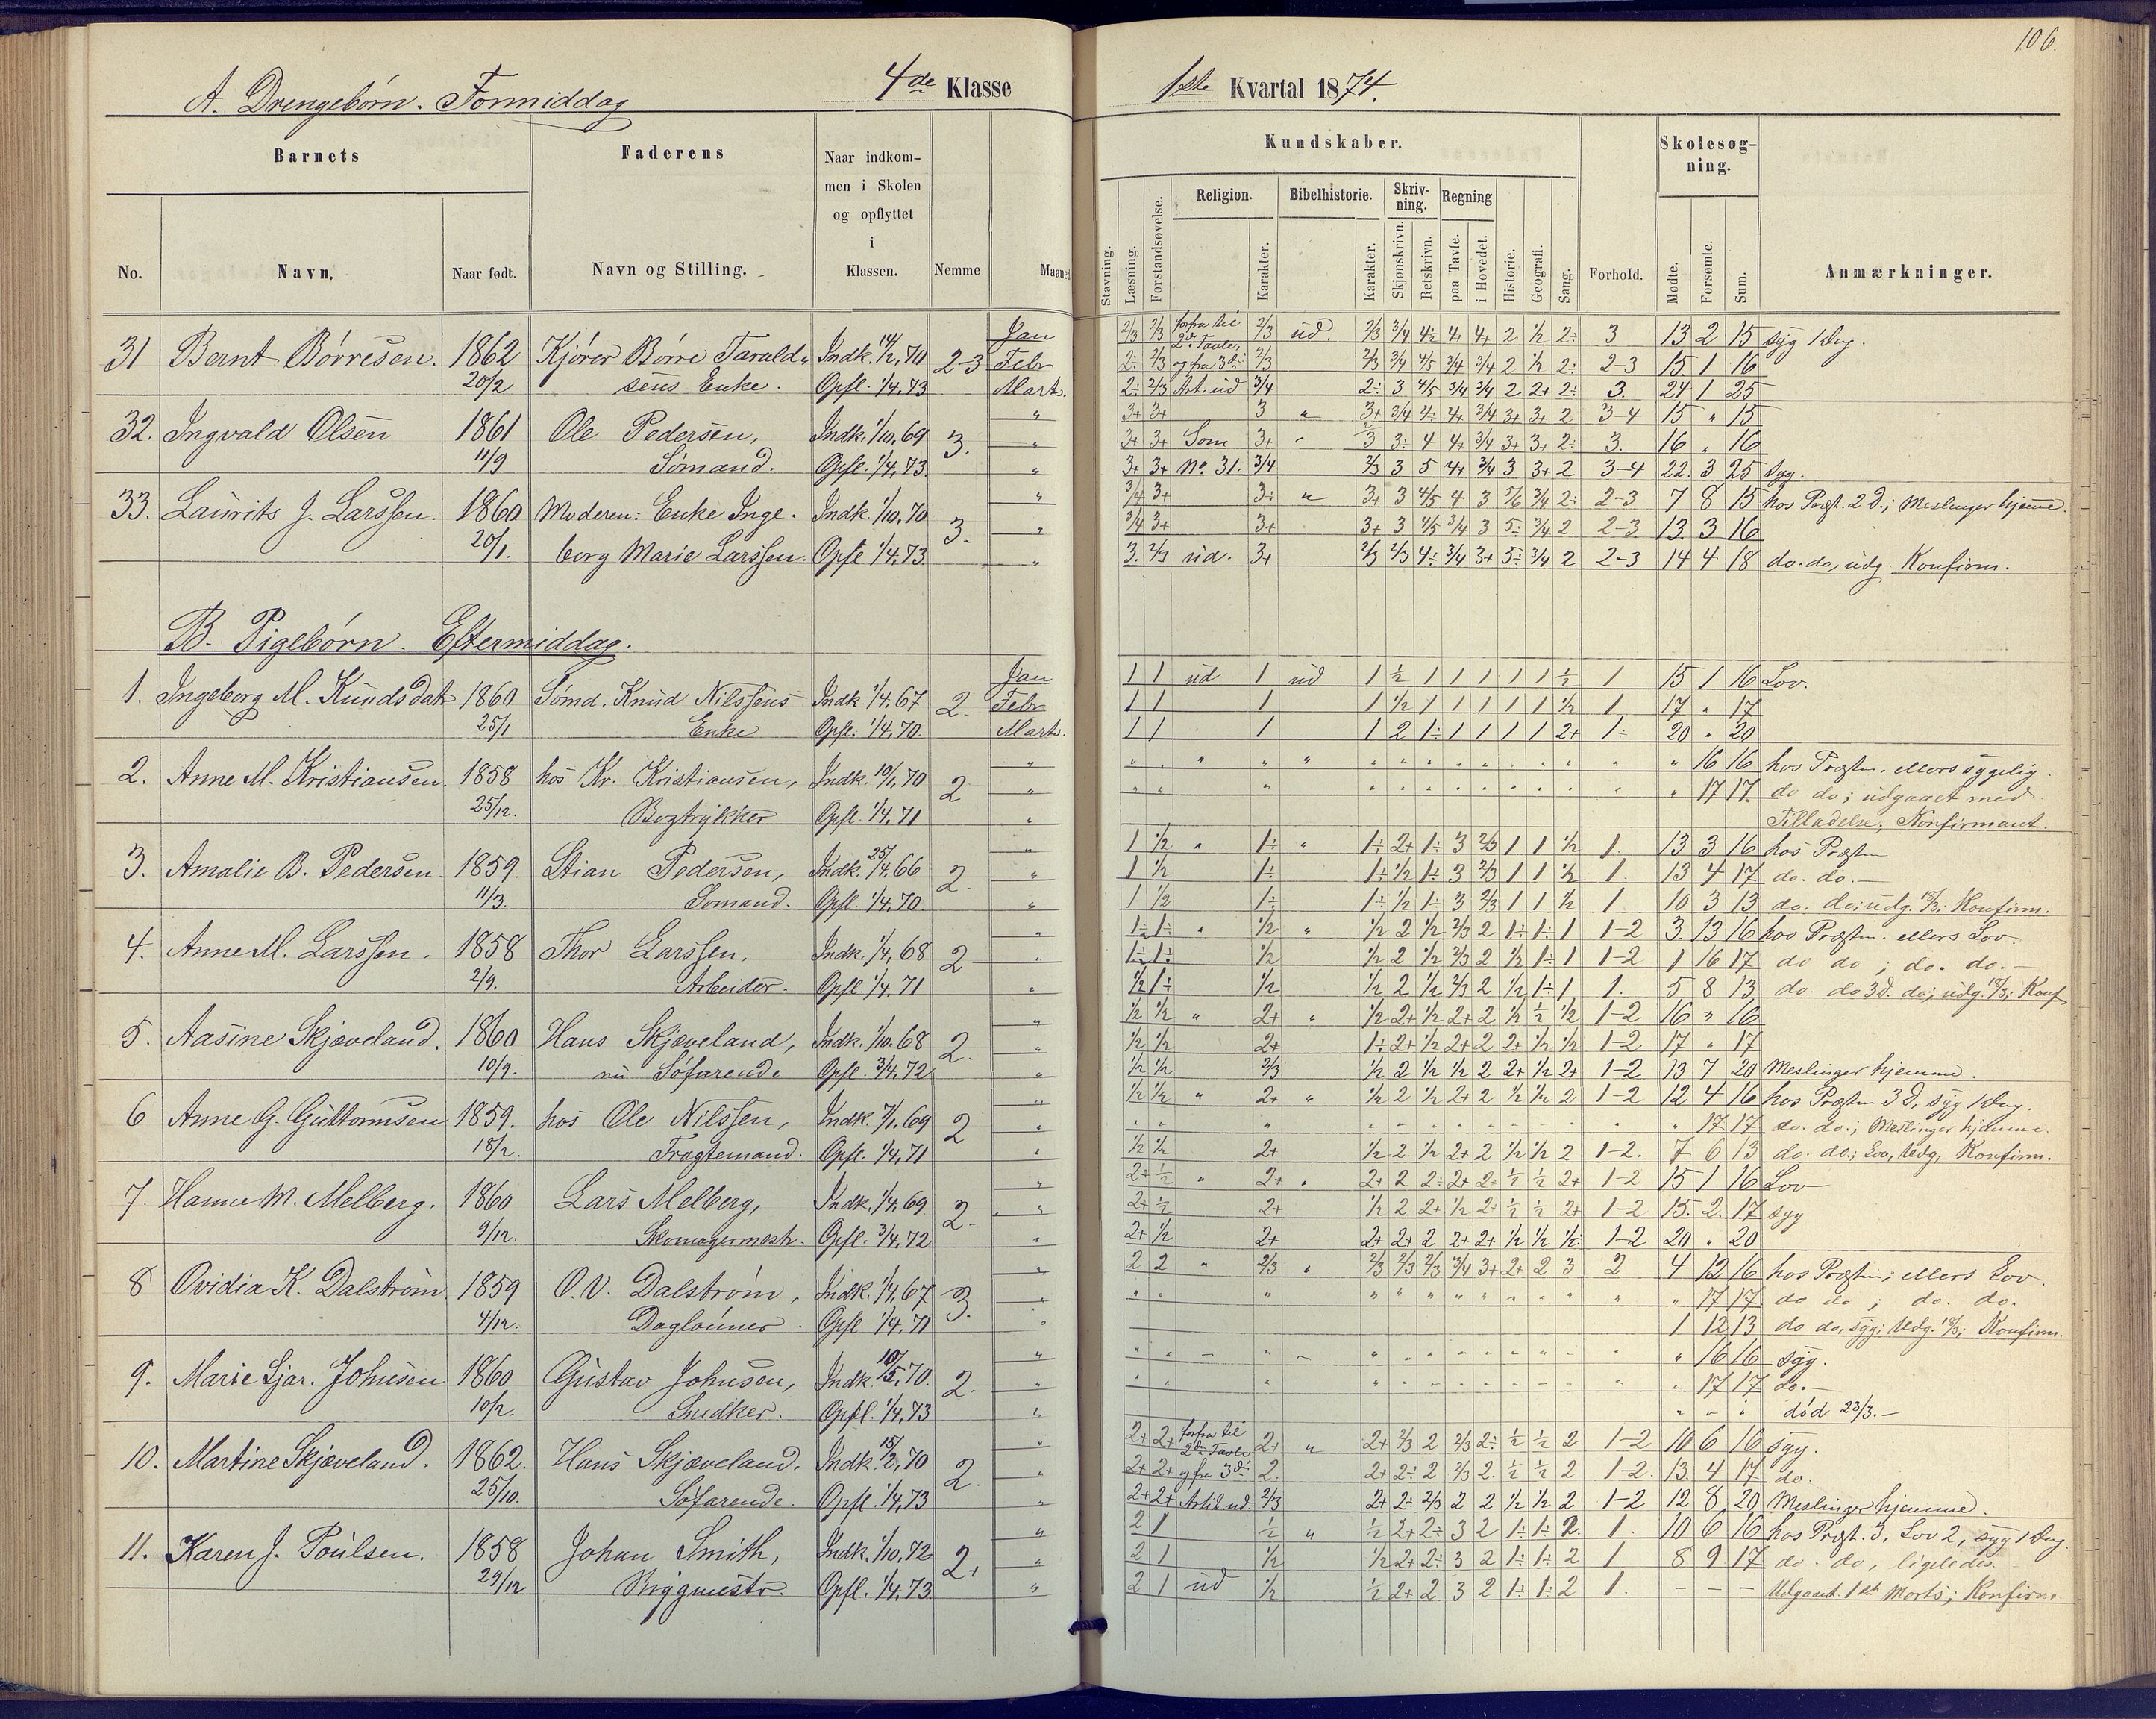 106.
A. Drengebørn. Formiddag
4de Klasse
1ste Kvartal 1874.
Barnets
Faderens
Naar indkom-
men i Skolen
og opflyttet
i
Klassen.
Kundskaber.
Skolesøg-
ning.
Religion.
Bibelhistorie.
Skriv-
ning.
Regning
No.
Navn.
Naar født.
Navn og Stilling.
Nemme
Maaned
Stavning.
Læsning.
Forstandsøvelse.
Karakter.
Karakter.
Skjønskrivn.
Retskrivn.
paa Tavle.
i Hovedet.
Historie.
Geografi.
Sang.
Forhold.
Mødte.
Forsømte.
Sum.
Anmærkninger.
31 Bernt Børresen. 1862 Kjører Børre Tarald- Indk. 14/2, 70 2-3 Jan 2/3 2/3 forfra til 2/3 ud. 2/3 3/4 4÷ 4+ 4+ 2 1/2 2÷ 3 13 2 15 syg 1 Dag.
20/2 sens Enke. Opfl. 1/4, 73 Febr 2÷ 2/3 2de Tavle, 2/3 2/3 3/4 4/5 3/4 3/4 2 1/2 2÷ 2-3 15 1 16
Marts. 2÷ 2/3 og fra 3die Art. ud 3/4 2÷ 3 4/5 3/4 3/4 2 2+ 2÷ 3. 24 1 25
32. Ingvald Olsen 1861 Ole Pedersen, Indk. 1/10, 69 3. " 3+ 3+ 3 " 3+ 3/4 4÷ 4+ 3/4 3+ 3+ 2 3-4 15 " 15
11/9 Sømand. Opfl. 1/4, 73. " 3+ 3+ Som 3+ 3 3÷ 4 4+ 3/4 3+ 3+ 2÷ 3. 16 " 16
" 3+ 3+ No. 31. 3/4 2/3 3 5 4+ 3/4 3 3+ 2 3-4 22. 3 25 syg.
33. Laurits J. Larssen. 1860 Moderen: Enke Inge- Indk. 1/10, 70 3. " 3/4 3+ 3÷ " 3+ 3 4/5 4 3 5/6 3/4 2÷ 2-3 7 8 15 hos Præst. 2 d.; Meslinger hjemme.
20/1. borg Marie Larssen. Opfl 1/4, 73. " 3/4 3+ 3+ 3+ 3 4/5 3/4 3 5÷ 3/4 2 2-3. 13. 3 16
" 3. 2/3 ud. 3+ 2/3 2/3 4÷ 3/4 3+ 5÷ 3/4 2 2-3 14 4 18 do. do, udg. Konfirm.
B. Pigebørn. Eftermiddag.
1. Ingeborg M. Knudsdatr 1860 Sømd. Knud Nilssens Indk. 1/4, 67 2. Jan 1 1 ud 1 ud 1 1/2 1 1 1 1 1 1/2 1 15 1 16 Lov.
25/1 Enke Opfl. 1/4, 70. Febr 1 1 1 1 1/2 1 1 1 1 1 1/2 1 17 " 17
Marts. 1 1 1 1 2 1÷ 1 1 1 1 2+ 1÷ 20 " 20
2. Anne M. Kristiansen. 1858 hos Kr. Kristiansen, Indk. 10/1, 70 2 " " " " " " " " " " " " " " " " 16 16 hos Præsten. ellers sygelig.
25/12. Bogtrykker Opfl. 1/4, 71 " " " " " " " " " " " " " " " 17 17. do do; udgaaet med
" Tilladelse; Konfirmant.
3. Amalie B. Pedersen. 1859. Stian Pedersen, Indk. 25/4, 66 2. " 1 1/2 " 1÷ " 1÷ 2+ 1÷ 3 2/3 1 1 1/2 1. 13 3 16 hos Præsten
11/3. Sømand. Opfl. 1/4, 70. " 1 1/2 1÷ 1÷ 1/2 1÷ 3 2/3 1 1 1/2 1. 13 4 17 do. do.-
" 1 1/2 1÷ 1÷ 1/2 1÷ 3 2/3 1 1 1/2 1 10 3 13 do. do: udg. 18/3; Konfirm.
4. Anne M. Larssen. 1858 Thor Larssen. Indk. 1/4, 68 2 " 1÷ 1÷ " 1/2 " 1/2 2 1/2 2/3 2 1÷ 1÷ 1 1-2 3. 13 16 hos Præsten. ellers Lov.
2/9. Arbeider. Opfl. 1/4, 71 " 1÷ 1÷ 1/2 1/2 2 1/2 2/3 2 1/2 1÷ 1 1-2 1 16 17 do do; do. do.-
" 1/2 1÷ 1/2 1/2 2 1/2 2/3 2 1/2 1÷ 1 1. 5 8 13 do. do 3 d. do; udg. 18/3; Konf
5. Aasine Skjæveland. 1860 Hans Skjæveland, Indk. 1/10, 68 2. " 1/2 1/2 " 2+ " 1/2 2+ 1/2 2+ 2 1/2 1/2 1/2 1-2 16 " 16
10/9. nu Søfarende Opfl. 3/4, 72 " 1/2 1/2 2+ 1÷ 2+ 1/2 2+ 2 2+ 1/2 1/2 1-2 17 " 17
" 1/2 1/2 2/3 1/2 2 1/2 1/2 2 2+ 1/2 2+ 1-2 13 7 20 Meslinger hjemme.
6 Anne G. Guttormsen 1859. hos Ole Nilssen, Indk. 7/1, 69 2 " 1/2 1/2 " 2+ " 1/2 2 1/2 2+ 2 1/2 1/2 2 1-2 12 4 16 hos Præsten 3 d, syg 1 Dag.
18/2. Fragtemand. Opfl. 1/4, 71 " " " " " " " " " " " " " " " 17 17 do. do.; Meslinger hjemme.
" 1/2 1/2 2+ 1/2 2. 1/2 2+ 2 1/2 1/2 2 1-2. 7 6 13 do. do.; Lov, Udg, Konfirm.
7. Hanne M. Melberg. 1860 Lars Melberg, Indk. 1/4, 69 2. " 2+ 1/2 " 2+ " 2+ 2 2÷ 2+ 2+ 1/2 1/2 2+ 1-2 15 1 16 Lov
9/12. Skomagermestr. Opfl. 3/4, 72 " 2+ 1/2 2+ 1/2 2 2+ 1/2 2+ 1/2 1/2 2+ 1-2 15. 2. 17 syg
" 2+ 1/2 2+ 2+ 2+ 2 2+ 2+ 1/2 1/2 1/2 1-2 20 " 20
8 Ovidia K. Dalstrøm. 1859 O. V. Dalstrøm, Indk. 1/4, 67 3. " 2 2 " 2/3 " 2/3 2/3 2/3 3/4 3+ 2+ 2 3 2 4 12 16 hos Præsten; ellers Lov.
4/12. Dagløner. Opfl 1/4, 71 " " " " " " " " " " " " " " " 17 17 do do; do. do.
" 1 12 13 do do, syg; Udg. 18/3; Konfirm.
9. Marie Sjar. Johnsen 1860 Gustav Johnsen, Indk. 10/5, 70. 2. " " " - " - " " " " " " " " " " 16 16 syg.
10/2. Snedker. Opfl. 1/4, 73 " " " " " " " " " " " " " " " 17 17 do.-
" " " " død 23/3.-
10. Martine Skjæveland. 1862. Hans Skjæveland. Indk. 15/2, 70 2. " 2+ 2+ forfra til 2+ " 2+ 2/3 2 2/3 2÷ 1/2 1/2 2 1-2 10 6 16 syg.
25/10. Søfarende. Opfl. 1/4, 73 " 2+ 2+ 2de Tavle og fra 3die 2. 2+ 2÷ 2 2/3 2. 1/2 1/2 2 1-2. 13. 4 17 do.
" 2+ 2+ Artik ud. 2/3 2+ 2÷ 2/3 2 2 1/2 1/2 2 1-2 12 8 20 Meslinger hjemme.
11. Karen J. Poulsen. 1858 Johan Smith, Indk. 1/10, 72 2+ " 2 1 1/2 " 1/2 2+ 2÷ 3 2 1÷ 1÷ 2. 1. 10 6 16 hos Præst. 3, Lov 2, syg 1 Dag.
29/12 Bygmestr. Opfl. 1/4, 73. " 2 1 1/2 1/2 2+ 2÷ 3 2 1÷ 1÷ 2 1 8 9 17 do. do, ligeledes.
" 2 1 ud 1/2 1/2 2+ 2 3 2 1÷ 1÷ 2 1. - - - Udgaaet 1st Marts; Konfirm.